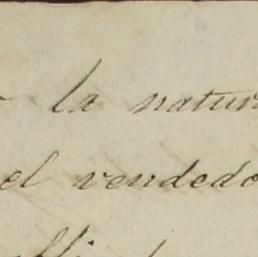 la natur
el vendedo